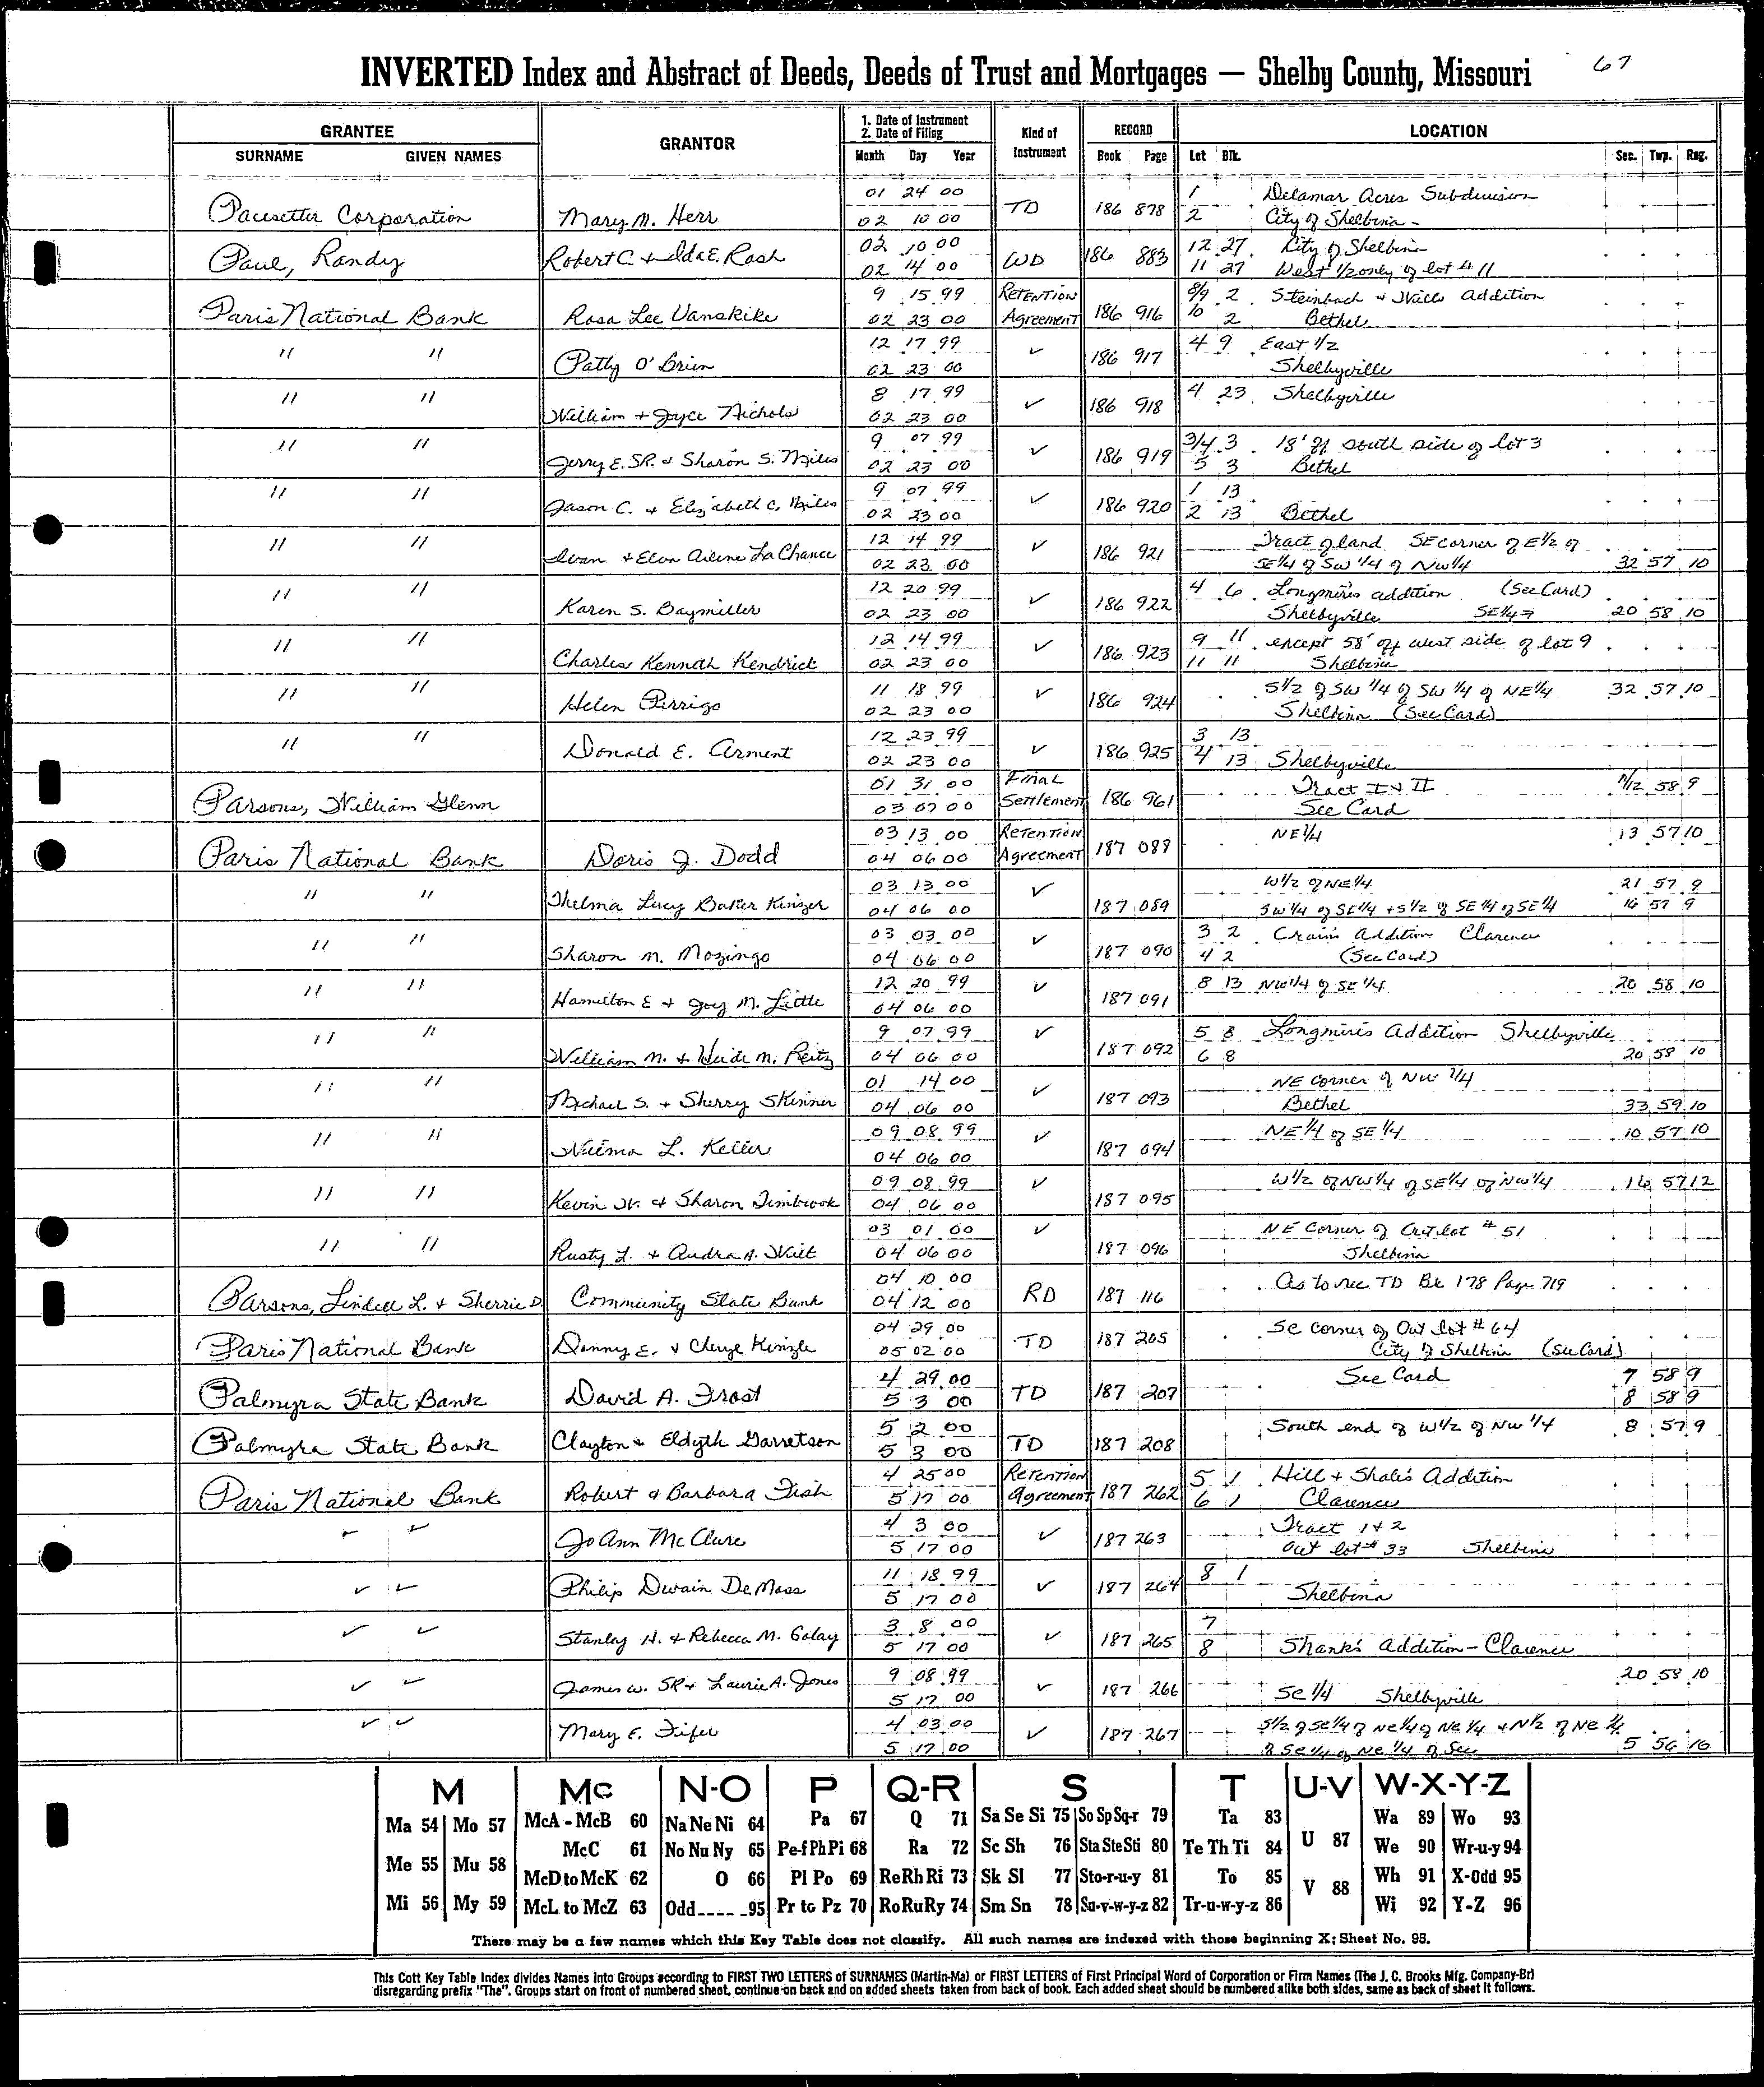 67
INVERTED Index and Abstract of Deeds, Deeds of Trust and Mortgages — Shelby County, Missouri
GRANTEE GRANTOR 1. Date of Instrument 2. Date of Filing Kind of Instrument RECORD LOCATION
SURNAME GIVEN NAMES Month Day Year Book Page Lot Blk. Sec. Twp. Rng.
01 24 00 1 Delamar Acres Subdivision
Pacesetter Corporation Mary M. Herr 02 10 00 TD 186 878 2 City of Shelbina -
02 10 00 12 27 City of Shelbina
Paul, Randy Robert C. & Ida E. Rash 02 14 00 WD 186 883 11 27 West 1/2 only of lot # 11
9 15 99 Retention 8/9 2 Steinbach & Will's Addition
Paris National Bank Rosa Lee Vanskike 02 23 00 Agreement 186 916 10 2 Bethel
12 17 99 4 9 East 1/2
" " Patty O'Brien 02 23 00 ✓ 186 917 Shelbyville
8 17 99 4 23 Shelbyville
" " William & Joyce Nichols 02 23 00 ✓ 186 918
9 07 99 3/4 3 18' off south side of lot 3
" " Jerry E. SR. & Sharon S. Miles 02 23 00 ✓ 186 919 5 3 Bethel
9 07 99 1 13
" " Jason C. & Elizabeth C. Miles 02 23 00 ✓ 186 920 2 13 Bethel
12 14 99 Tract of land SE corner of E 1/2 of
" " Ivan & Elon Arlene LaChance 02 23 00 ✓ 186 921 SE 1/4 of SW 1/4 of NW 1/4 32 57 10
12 20 99 4 6 Longmire's addition (See Card)
" " Karen S. Baymiller 02 23 00 ✓ 186 922 Shelbyville SE 1/4 20 58 10
12 14 99 9 11 except 58' off west side of lot 9
" " Charles Kenneth Kendrick 02 23 00 ✓ 186 923 11 11 Shelbina
11 18 99 S 1/2 of SW 1/4 of SW 1/4 of NE 1/4 32 57 10
" " Helen Perrigo 02 23 00 ✓ 186 924 Shelbina (See Card)
12 23 99 3 13
" " Donald E. Arment 02 23 00 ✓ 186 925 4 13 Shelbyville
01 31 00 Final Tract I & II 11/12 58 9
Parsons, William Glenn 03 07 00 Settlement 186 961 See Card
03 13 00 Retention NE 1/4 13 57 10
Paris National Bank Doris J. Dodd 04 06 00 Agreement 187 088
03 13 00 W 1/2 of NE 1/4 21 57 9
" " Thelma Lucy Baker Kinzer 04 06 00 ✓ 187 089 SW 1/4 of SE 1/4 + S 1/2 of SE 1/4 of SE 1/4 16 57 9
03 03 00 3 2 Crain's Addition Clarence
" " Sharon M. Mozingo 04 06 00 ✓ 187 090 4 2 (See Card)
12 20 99 8 13 NW 1/4 of SE 1/4 20 58 10
" " Hamilton E & Joy M. Little 04 06 00 ✓ 187 091
9 07 99 5 8 Longmire's Addition Shelbyville
" " William M. & Heidi M. Reitz 04 06 00 ✓ 187 092 6 8 20 58 10
01 14 00 NE corner of NW 1/4
" " Michael S. & Sherry Skinner 04 06 00 ✓ 187 093 Bethel 33 59 10
09 08 99 NE 1/4 of SE 1/4 10 57 10
" " Wilma L. Keller 04 06 00 ✓ 187 094
09 08 99 W 1/2 of NW 1/4 of SE 1/4 of NW 1/4 16 57 12
" " Kevin W. & Sharon Timbrook 04 06 00 ✓ 187 095
03 01 00 NE Corner of Outlot # 51
" " Rusty L. & Audra A. Wilt 04 06 00 ✓ 187 096 Shelbina
04 10 00 As to rec TD Bk 178 Page 719
Parsons, Lindell L. & Sherrie D. Community State Bank 04 12 00 RD 187 116
04 29 00 SE corner of Out lot # 64
Paris National Bank Danny E. & Cheryl Kinzle 05 02 00 TD 187 205 City of Shelbina (See Card)
4 29 00 See Card 7 58 9
Palmyra State Bank David A. Frost 5 3 00 TD 187 207 8 58 9
5 2 00 South end of W 1/2 of NW 1/4 8 57 9
Palmyra State Bank Clayton & Eldyth Garretson 5 3 00 TD 187 208
4 25 00 Retention 5 1 Hill & Shale's Addition
Paris National Bank Robert & Barbara Fish 5 17 00 Agreement 187 262 6 1 Clarence
4 3 00 Tract 1 & 2
✓ ✓ JoAnn McClure 5 17 00 ✓ 187 263 Out lot # 33 Shelbina
11 18 99 8 1
✓ ✓ Philip Dwain DeMoss 5 17 00 ✓ 187 264 Shelbina
3 8 00 7
✓ ✓ Stanley H. & Rebecca M. Golay 5 17 00 ✓ 187 265 8 Shank's Addition - Clarence
9 08 99 20 58 10
✓ ✓ James W. SR & Laurie A. Jones 5 17 00 ✓ 187 266 SE 1/4 Shelbyville
4 03 00 S 1/2 of SE 1/4 of NE 1/4 of NE 1/4 + N 1/2 of NE 1/4
✓ ✓ Mary E. Fifer 5 17 00 ✓ 187 267 of SE 1/4 of NE 1/4 of Sec 5 56 10
M Mc N-O P Q-R S T U-V W-X-Y-Z
Ma 54 Mo 57 McA - McB 60 Na Ne Ni 64 Pa 67 Q 71 Sa Se Si 75 So Sp Sq-r 79 Ta 83 U 87 Wa 89 Wo 93
Me 55 Mu 58 McC 61 No Nu Ny 65 Pe-f Ph Pi 68 Ra 72 Sc Sh 76 Sta Ste Sti 80 Te Th Ti 84 We 90 Wr-u-y 94
McD to McK 62 O 66 Pl Po 69 Re Rh Ri 73 Sk Sl 77 Sto-r-u-y 81 To 85 V 88 Wh 91 X-Odd 95
Mi 56 My 59 McL to McZ 63 Odd---- -95 Pr to Pz 70 Ro Ru Ry 74 Sm Sn 78 Su-v-w-y-z 82 Tr-u-w-y-z 86 Wi 92 Y-Z 96
There may be a few names which this Key Table does not classify. All such names are indexed with those beginning X; Sheet No. 95.
This Cott Key Table Index divides Names into Groups according to FIRST TWO LETTERS of SURNAMES (Martin-Ma) or FIRST LETTERS of First Principal Word of Corporation or Firm Names (The J. C. Brooks Mfg. Company-Br)
disregarding prefix "The". Groups start on front of numbered sheet, continue on back and on added sheets taken from back of book. Each added sheet should be numbered alike both sides, same as back of sheet it follows.